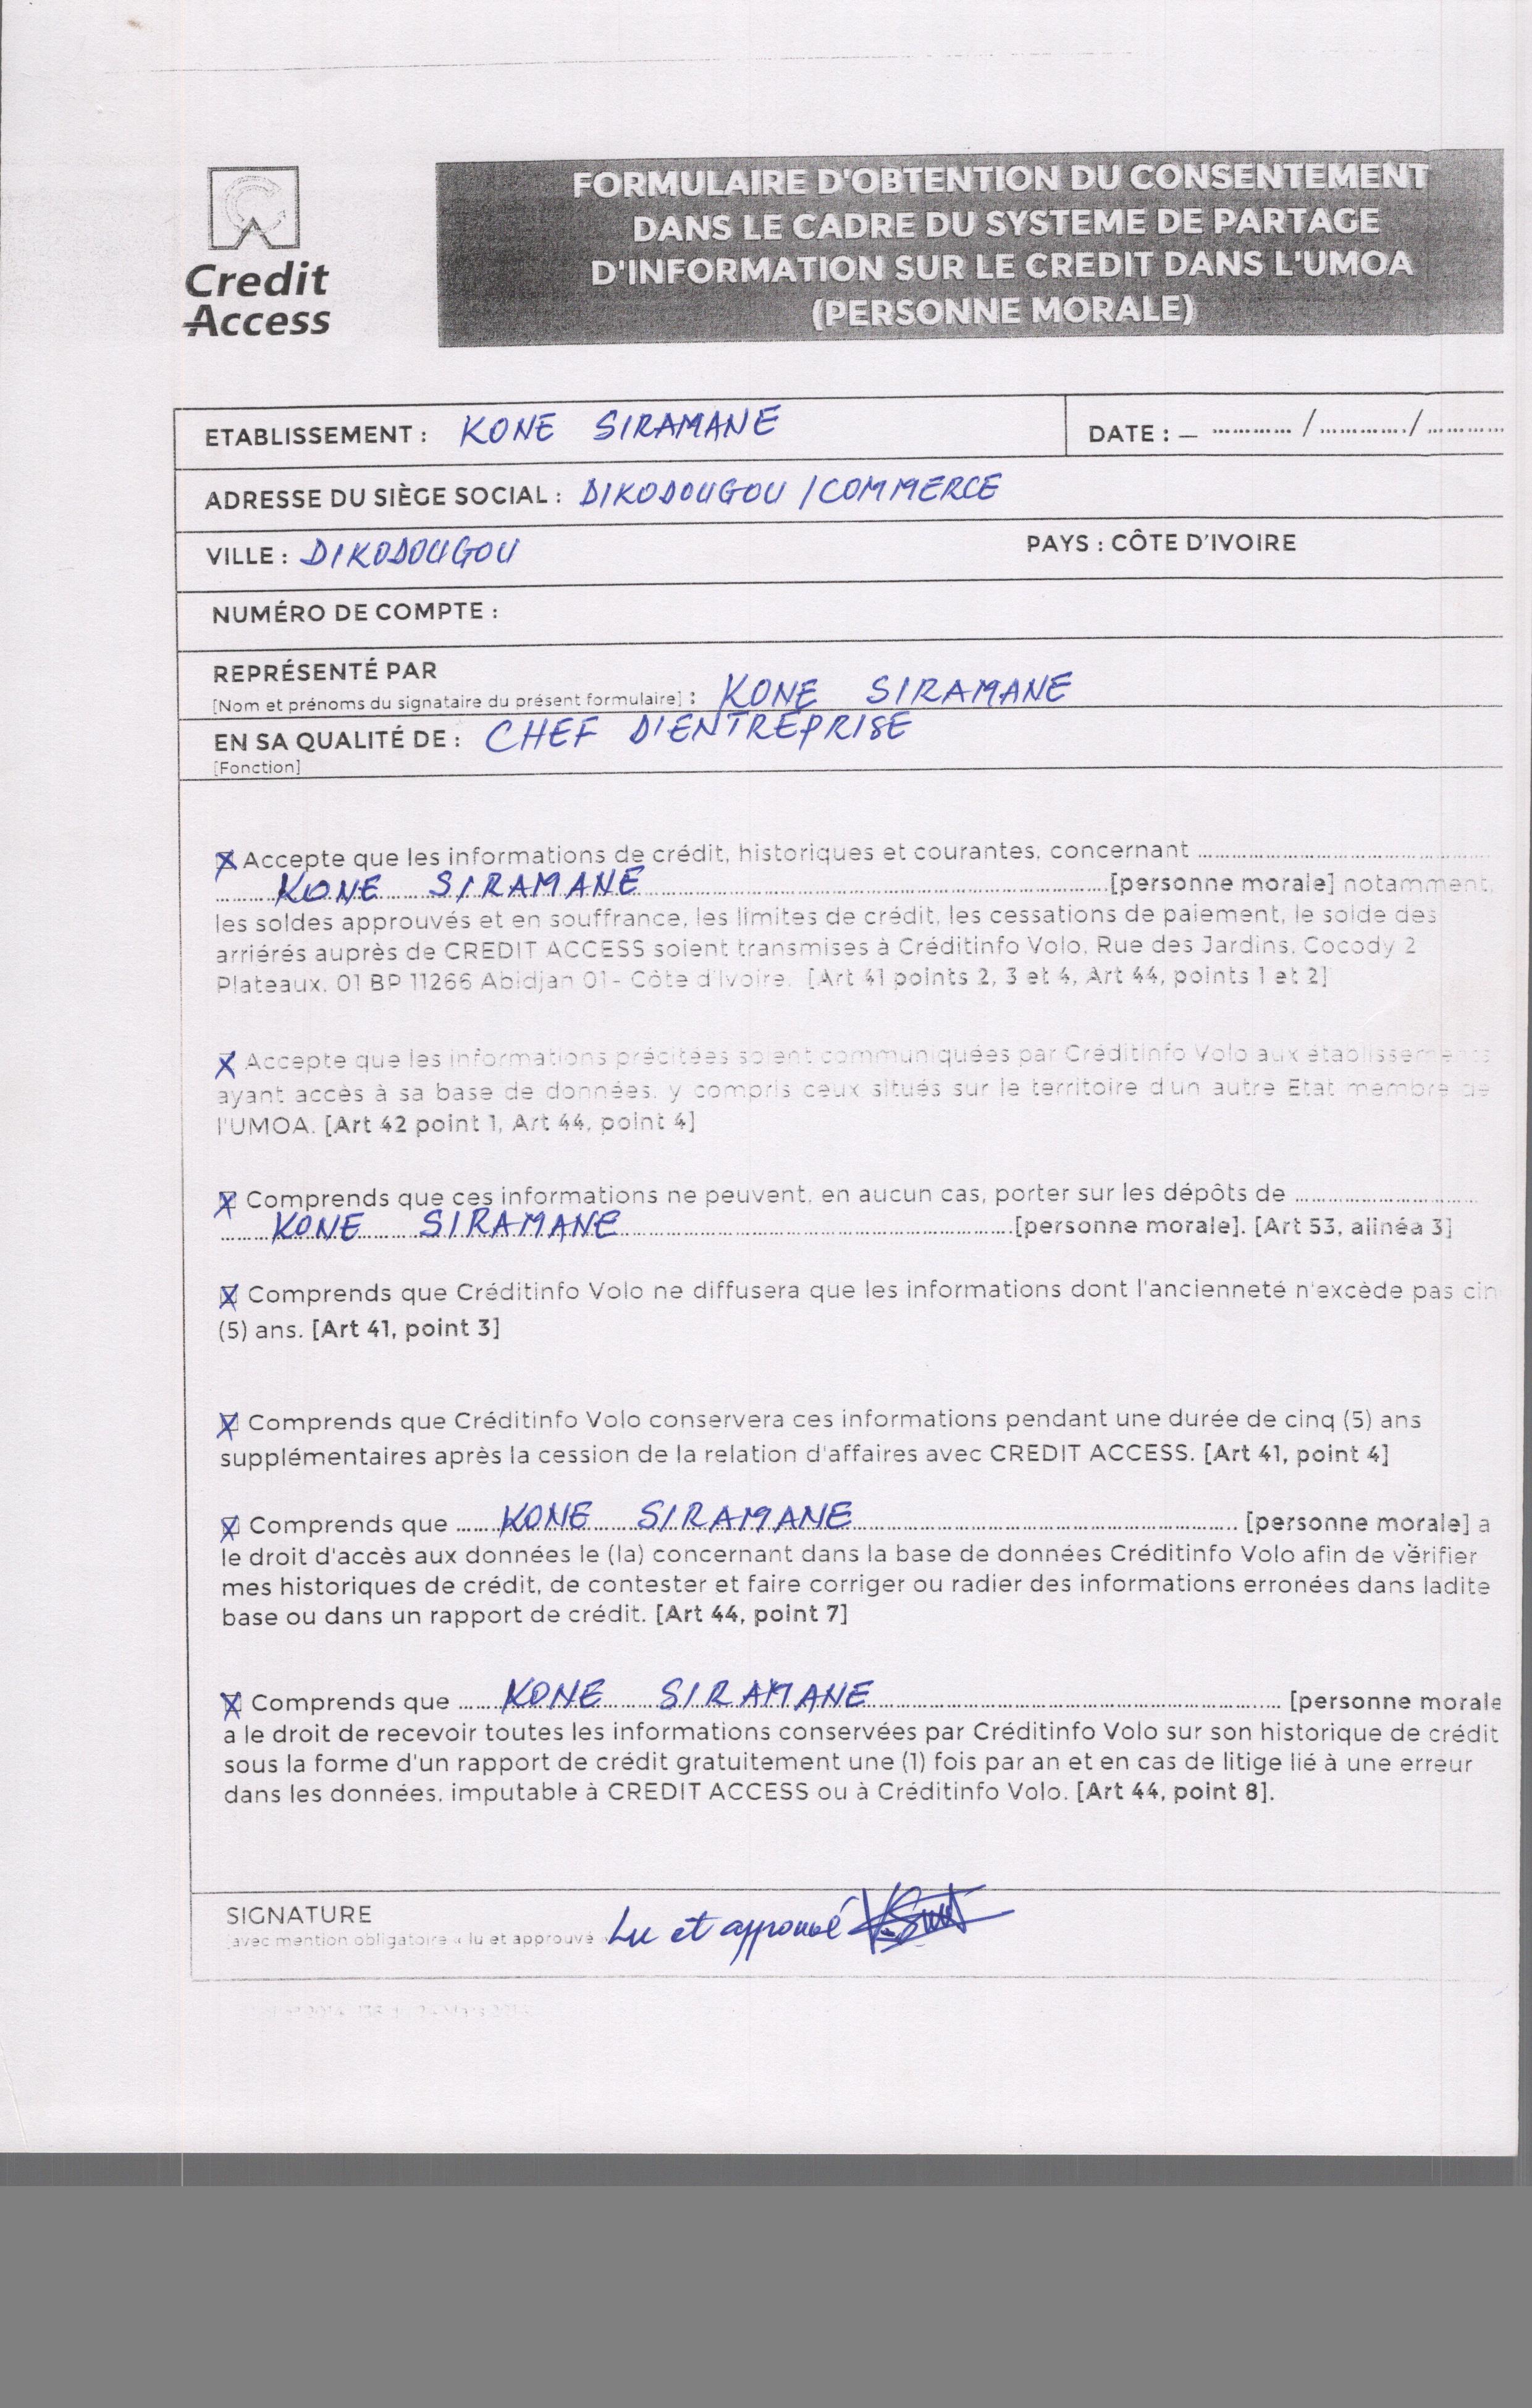 Credit
Access
FORMULAIRE D'OBTENTION DU CONSENTEMENT
DANS LE CADRE DU SYSTEME DE PARTAGE
D'INFORMATION SUR LE CREDIT DANS L'UMOA
(PERSONNE MORALE)
ETABLISSEMENT : KONE SIRAMANE
DATE : – ............ / ............. / ............
ADRESSE DU SIÈGE SOCIAL : DIKODOUGOU / COMMERCE
VILLE : DIKODOUGOU PAYS : CÔTE D'IVOIRE
NUMÉRO DE COMPTE :
REPRÉSENTÉ PAR
[Nom et prénoms du signataire du présent formulaire] : KONE SIRAMANE
EN SA QUALITÉ DE : CHEF D'ENTREPRISE
[Fonction]
Accepte que les informations de crédit, historiques et courantes, concernant ..........
KONE SIRAMANE .......... [personne morale] notamment,
les soldes approuvés et en souffrance, les limites de crédit, les cessations de paiement, le solde des
arriérés auprès de CREDIT ACCESS soient transmises à Créditinfo Volo, Rue des Jardins, Cocody 2
Plateaux, 01 BP 11266 Abidjan 01- Côte d'Ivoire. [Art 41 points 2, 3 et 4, Art 44, points 1 et 2]
Accepte que les informations précitées soient communiquées par Créditinfo Volo aux établissements
ayant accès à sa base de données, y compris ceux situés sur le territoire d'un autre Etat membre de
l'UMOA. [Art 42 point 1, Art 44, point 4]
Comprends que ces informations ne peuvent, en aucun cas, porter sur les dépôts de ..........
KONE SIRAMANE .......... [personne morale]. [Art 53, alinéa 3]
Comprends que Créditinfo Volo ne diffusera que les informations dont l'ancienneté n'excède pas cin
(5) ans. [Art 41, point 3]
Comprends que Créditinfo Volo conservera ces informations pendant une durée de cinq (5) ans
supplémentaires après la cession de la relation d'affaires avec CREDIT ACCESS. [Art 41, point 4]
Comprends que ...... KONE SIRAMANE .......... [personne morale] a
le droit d'accès aux données le (la) concernant dans la base de données Créditinfo Volo afin de vérifier
mes historiques de crédit, de contester et faire corriger ou radier des informations erronées dans ladite
base ou dans un rapport de crédit. [Art 44, point 7]
Comprends que ...... KONE SIRAMANE .......... [personne morale
a le droit de recevoir toutes les informations conservées par Créditinfo Volo sur son historique de crédit
sous la forme d'un rapport de crédit gratuitement une (1) fois par an et en cas de litige lié à une erreur
dans les données, imputable à CREDIT ACCESS ou à Créditinfo Volo. [Art 44, point 8].
SIGNATURE
[avec mention obligatoire « lu et approuvé » Lu et approuvé